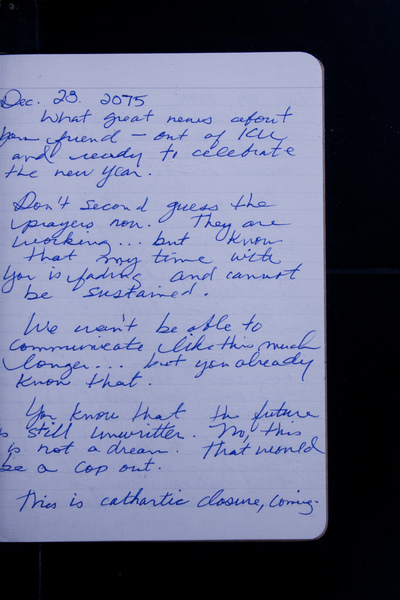 Dec. 23. 2075
What great news about
your friend — out of ICU
and ready to celebrate
the new year.
Don't second guess the
prayers now. They are
working... but know
that my time with
you is fading and cannot
be sustained.
We won't be able to
communicate like this much
longer... but you already
know that.
You know that the future
is still unwritten. No, this
is not a dream. That would
be a cop out.
This is cathartic closure, coming